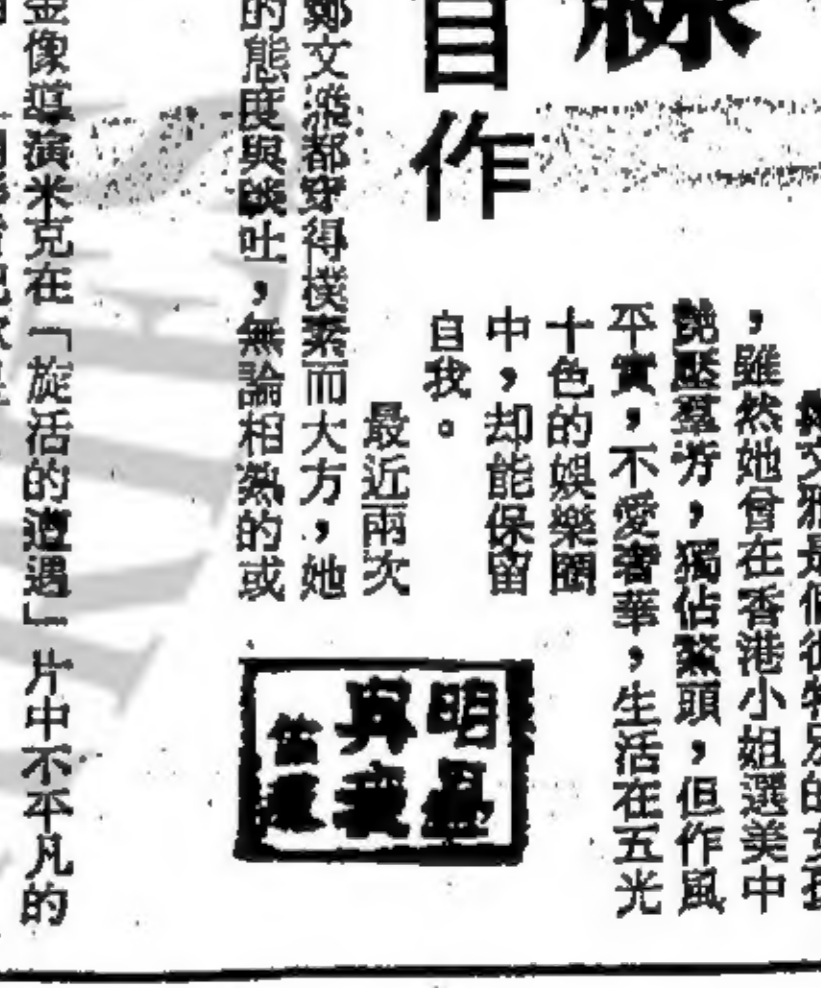 線
自作
文雅是個很特別的女孩
，雖然她曾在香港小姐選美中
艷壓羣芳，獨佔鰲頭，但作風
平實，不愛奢華，生活在五光
十色的娛樂圈
中，却能保留
自我。
最近兩次
鄭文雅都穿得樸素而大方，她
的態度與談吐，無論相熟的或
明星
與我
金像導演米克在「旋活的遭遇」片中不平凡的